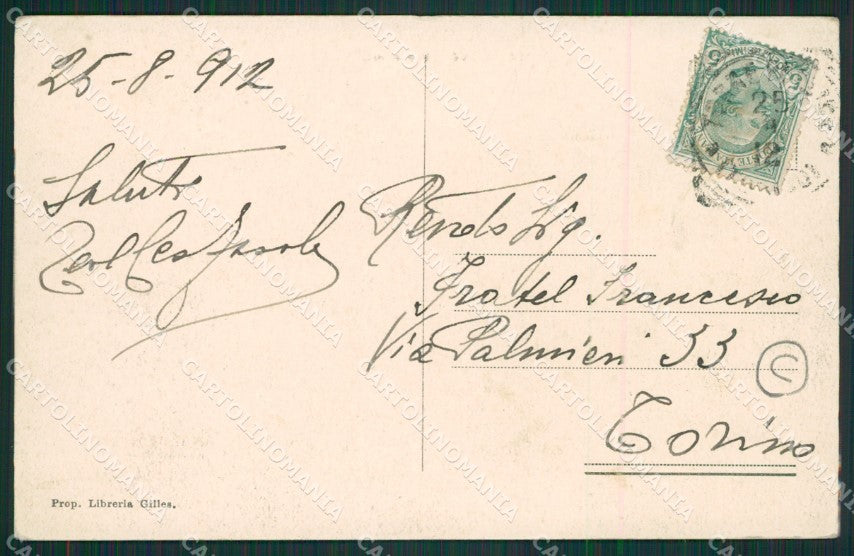 25-8-912
Saluti
Rendo Sig.
Fratel Francesco
Via Palmieri 33
Torino
Prop. Libreria Gilles.
CARTOLINOMANIA